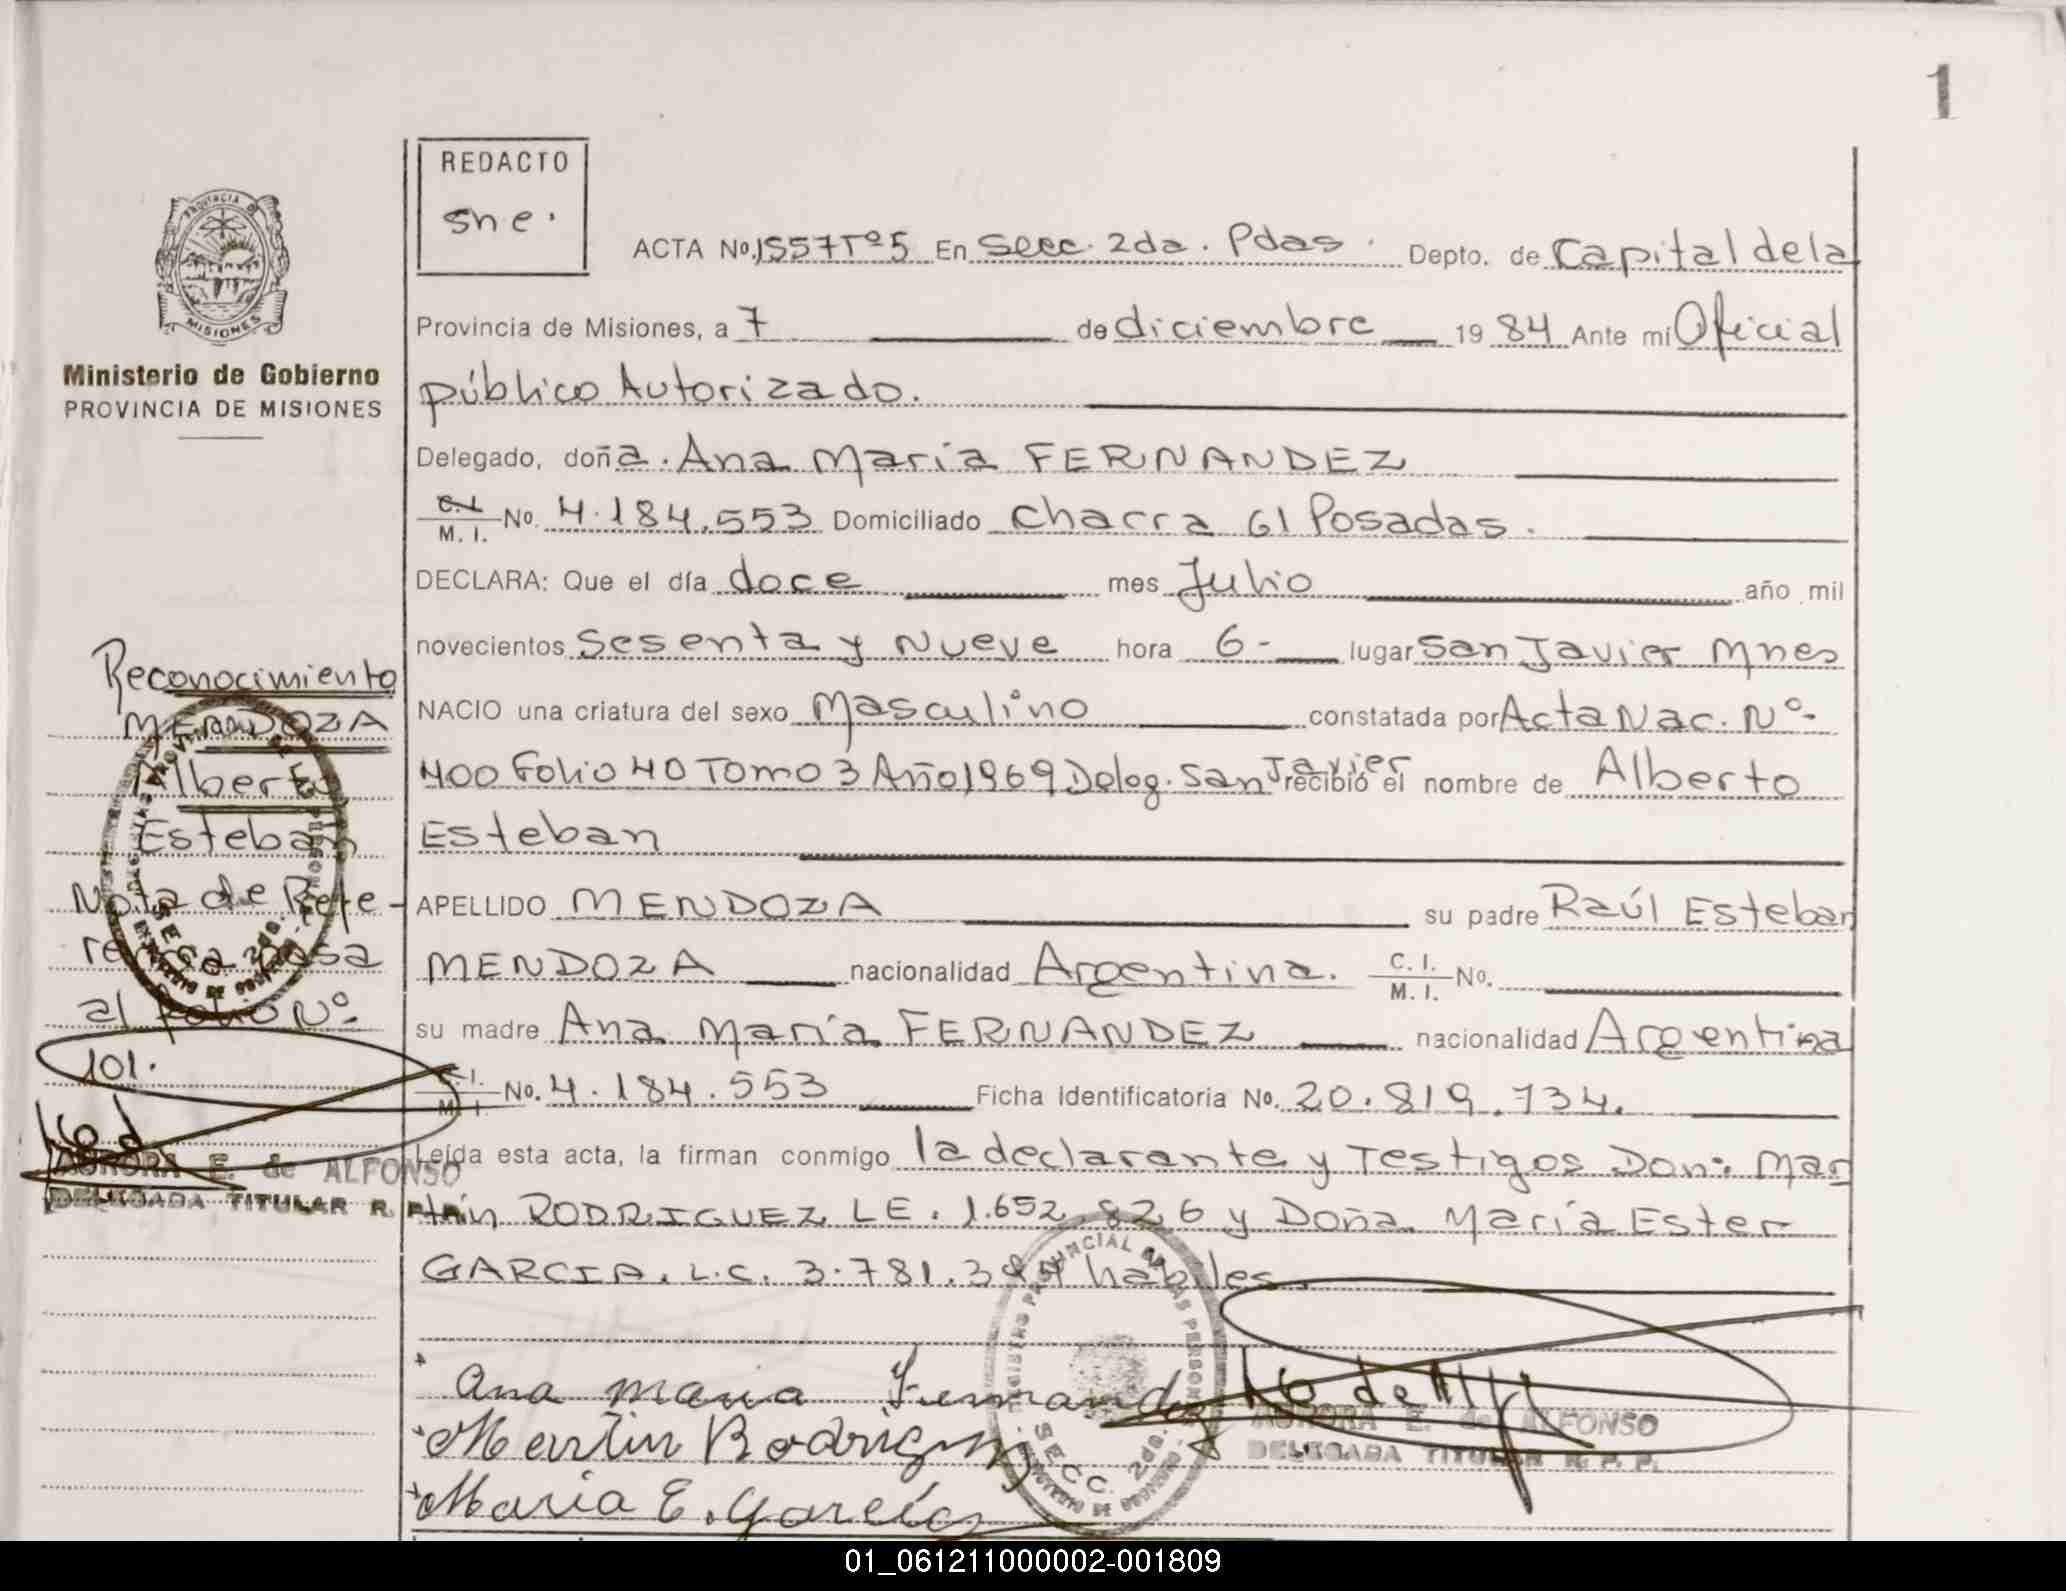 1
REDACTO
sne.
PROVINCIA DE
MISIONES
Ministerio de Gobierno
PROVINCIA DE MISIONES
ACTA No. 1557 Tº 5 En Secc. 2da. Pdas. Depto. de Capital de la
Provincia de Misiones, a 7 de diciembre 1984 Ante mí Oficial
público Autorizado.
Delegado, doña. Ana María FERNANDEZ
C.I. / M. I. No. 4.184.553 Domiciliado Chacra 61 Posadas.
DECLARA: Que el día doce mes Julio año mil
novecientos Sesenta y Nueve hora 6- lugar San Javier Mnes
NACIO una criatura del sexo Masculino constatada por Acta Nac. Nº-
400 Folio 40 Tomo 3 Año 1969 Deleg. San Javier recibió el nombre de Alberto
Esteban
APELLIDO MENDOZA su padre Raúl Esteban
MENDOZA nacionalidad Argentina. C. I. / M. I. No.
su madre Ana María FERNANDEZ nacionalidad Argentina
C.I. / M. I. No. 4.184.553 Ficha Identificatoria No. 20.819.734.
Leída esta acta, la firman conmigo la declarante y Testigos Don: Mar
tín RODRIGUEZ LE. 1.652.826 y Doña María Ester
GARCIA. L.C. 3.781. hábiles.
Ana maria Fernandez
Martin Rodriguez
Maria E. García
AURORA E. de ALFONSO
DELEGADA TITULAR R. P. P.
SECC. 2da.
Reconocimiento
MENDOZA
Alberto
Esteban
Nota de Refe-
rencia pasa
al folio Nº
101.
AURORA E. de ALFONSO
DELEGADA TITULAR R. P. P.
01_061211000002-001809